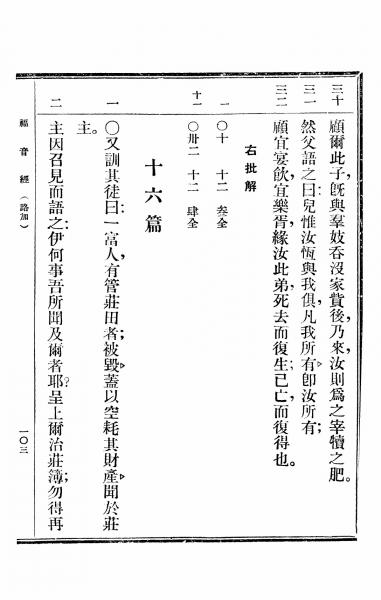 三十 顧爾此子,旣與羣妓吞沒家貲後,乃來,汝則爲之宰犢之肥。
三一 然父語之曰:兒惟汝恆與我俱,凡我所有,卽汝所有;
三二 顧宜宴飲,宜樂胥,緣汝此弟,死去而復生;已亡,而復得也。
右批解
一 〇十 十二 叁仝
十一 〇卅二 十二 肆仝
十六篇
一 〇又訓其徒曰:一富人,有管莊田者;被毀,蓋以空耗其財產,聞於莊
主。
二 主因召見而語之:伊何事吾所聞及爾者耶?呈上爾治莊簿;勿得再
福音經 (路加) 一〇三